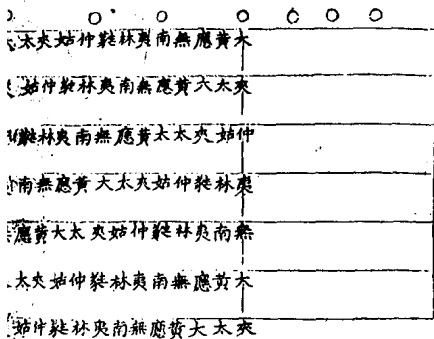 太夾姑仲蕤林夷南無應黃大
姑仲蕤林夷南無應黃大太夾
蕤林夷南無應黃太太夾姑仲
南無應黃大太夾姑仲蕤林夷
應黃大太夾姑仲蕤林夷南無
太夾姑仲蕤林夷南無應黃大
姑仲蕤林夷南無應黃大太夾